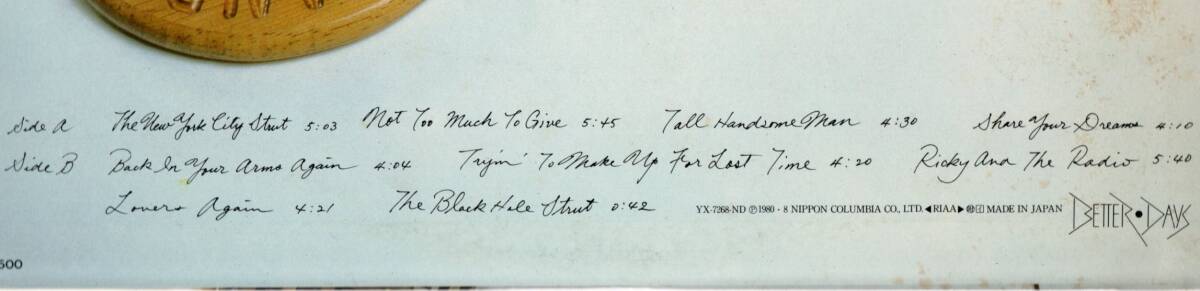 Side A The New York City Strut 5:03 Not Too Much To Give 5:45 Tall Handsome Man 4:30 Share Your Dreams 4:10
Side B Back In Your Arms Again 4:04 Tryin' To Make Up For Lost Time 4:20 Ricky And The Radio 5:40
Lovers Again 4:21 The Black Hole Strut 0:42 YX-7268-ND Ⓟ1980·8 NIPPON COLUMBIA CO., LTD. ◀RIAA▶ MADE IN JAPAN BETTER•DAYS
500